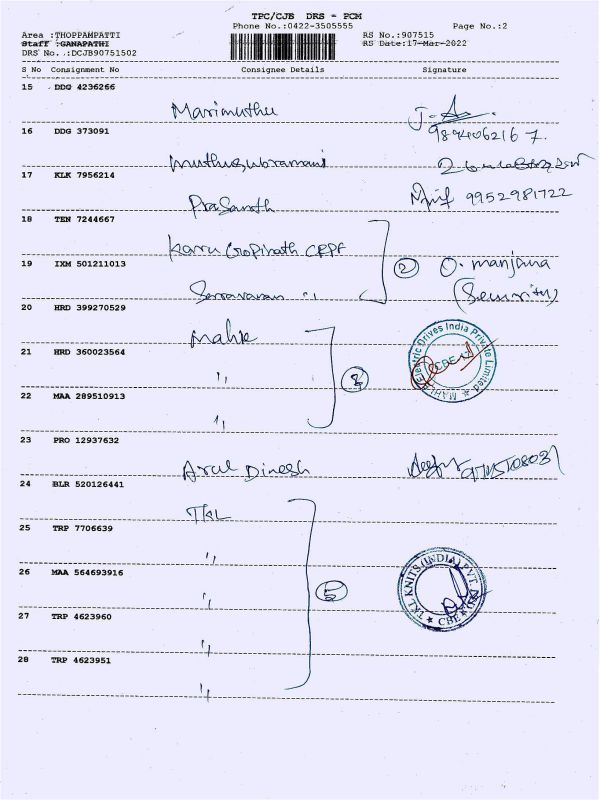 TPC/CJB DRS - PCM
Phone No.:0422-3505555
Page No.:2
Area :THOPPAMPATTI
RS No.:907515
Staff :GANAPATHI
RS Date:17-Mar-2022
DRS No..:DCJB90751502
S No Consignment No Consignee Details Signature
15 DDG 4236266
Marimuthu
9894062167.
16 DDG 373091
muthusubramani
17 KLK 7956214
Prasanth 9952981722
18 TEN 7244667
Karu Gopinath CRPF
19 IXM 501211013
② O. manjana
Saravanan "
(Security)
20 HRD 399270529
Mahle
21 HRD 360023564
"
22 MAA 289510913
"
Electric Drives India Private Limited
CBE
23 PRO 12937632
Arul Dinesh
24 BLR 520126441
TKL
25 TRP 7706639
"
26 MAA 564693916
"
⑤
TKL KNITS (INDIA) PVT.
CBE
27 TRP 4623960
"
28 TRP 4623951
"